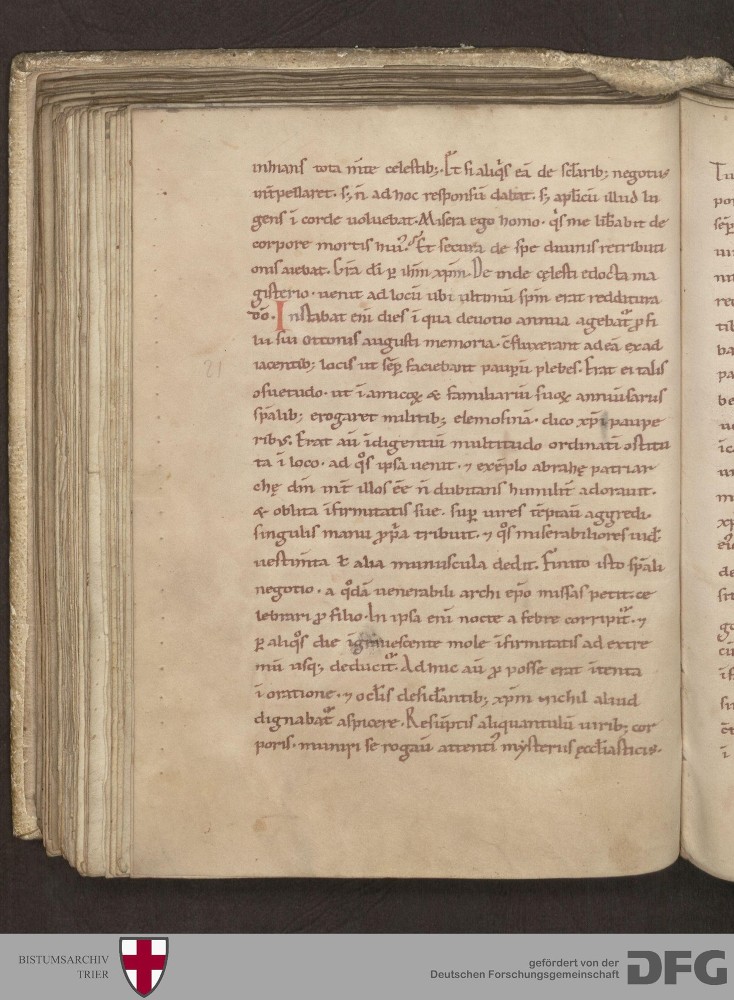 inhians tota m̅te celestib;. Et si aliq̊s eā de sc̅larib; negotiis
int̅pellaret. s; n̄ ad hoc responsū dabat. s; ap̅licū illud lu
gens ī corde voluebat. Misera ego homo. q̊s me lib̅abit de
corpore mortis hui᾽. Et secura de spe divinis retributi
onis aiebat. Gr̅a dī p ih̅m xp̅m. De inde cęlesti edocta ma
gisterio. venit ad locū ubi ultimū sp̅m erat redditura
dō. Instabat enī dies ī qua devotio annua agebat᷑ ꝓ fi
lii sui ottonis augusti memoria. c̅fluxerant ad eā ex ad
iacentib; locis ut sēp faciebant paupū plebes. Erat ei talis
c̅suetudo. ut ī amicoꝝ & familiariū suoꝝ anniv̅sariis
sp̅alib; erogaret militib; elemosinā. dico xp̅i paupe
ribus. Erat aū īdigentiū multitudo ordinatī c̅stitu
ta ī loco. ad q̊s ipsa venit. ⁊ exēplo abrahę patriar
chę dm̅ int̅ illos eē n̄ dubitans humilit̅ adoravit.
& oblita īfirmitatis sue. sup vires tēptavī aggredi.
singulis manu ꝓp̅a tribuit. ⁊ q̊s miserabiliores vid̅.
vestim̅ta & alia munuscula dedit. Finito isto sp̅ali
negotio. a q̊dā venerabili archi ep̅o missas petiit. ce
lebrari ꝓ filio. In ipsa enī nocte a febre corripit᷑. ⁊
p aliq̊s die ingravescente mole īfirmitatis ad extre
mū usq; deducit᷑. Adhuc aū ꝓ posse erat ītenta
ī oratione. ⁊ oc̅lis desid̅antib; xp̅m nichil aliud
dignabat᷑ aspicere. Resūptis aliquantulū virib; cor
poris. muniri se rogavī attenti᾽ mysteriis ęcc̅lasticis.
21
BISTUMSARCHIV
TRIER
gefördert von der
Deutschen Forschungsgemeinschaft
DFG